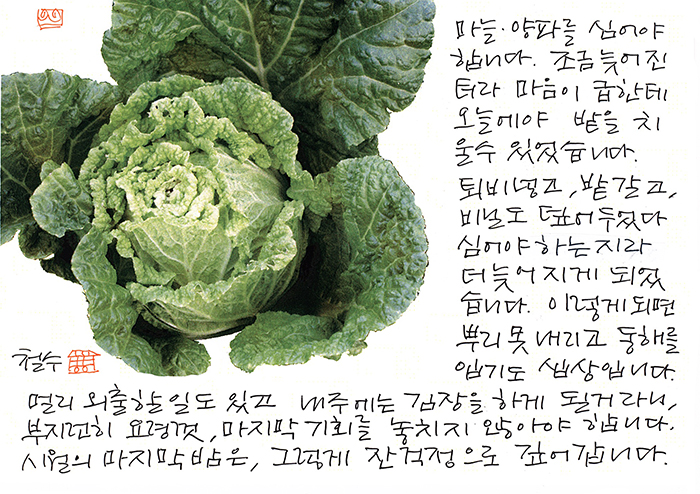 마늘·양파를 심어야
합니다. 조금 늦어진
터라 마음이 급한데
오늘에야 밭을 치
울수 있었습니다.
퇴비넣고, 밭 갈고,
비닐도 덮어두었다
심어야 하는지라
더 늦어지게 되었
습니다. 이렇게 되면
뿌리 못 내리고 동해를
입기도 쉽상입니다.
철수
멀리 외출할 일도 있고 내주에는 김장을 하게 될거라니,
부지런히 요령껏, 마지막 기회를 놓치지 않아야 합니다.
시월의 마지막 밤은, 그렇게 잔걱정으로 깊어갑니다.